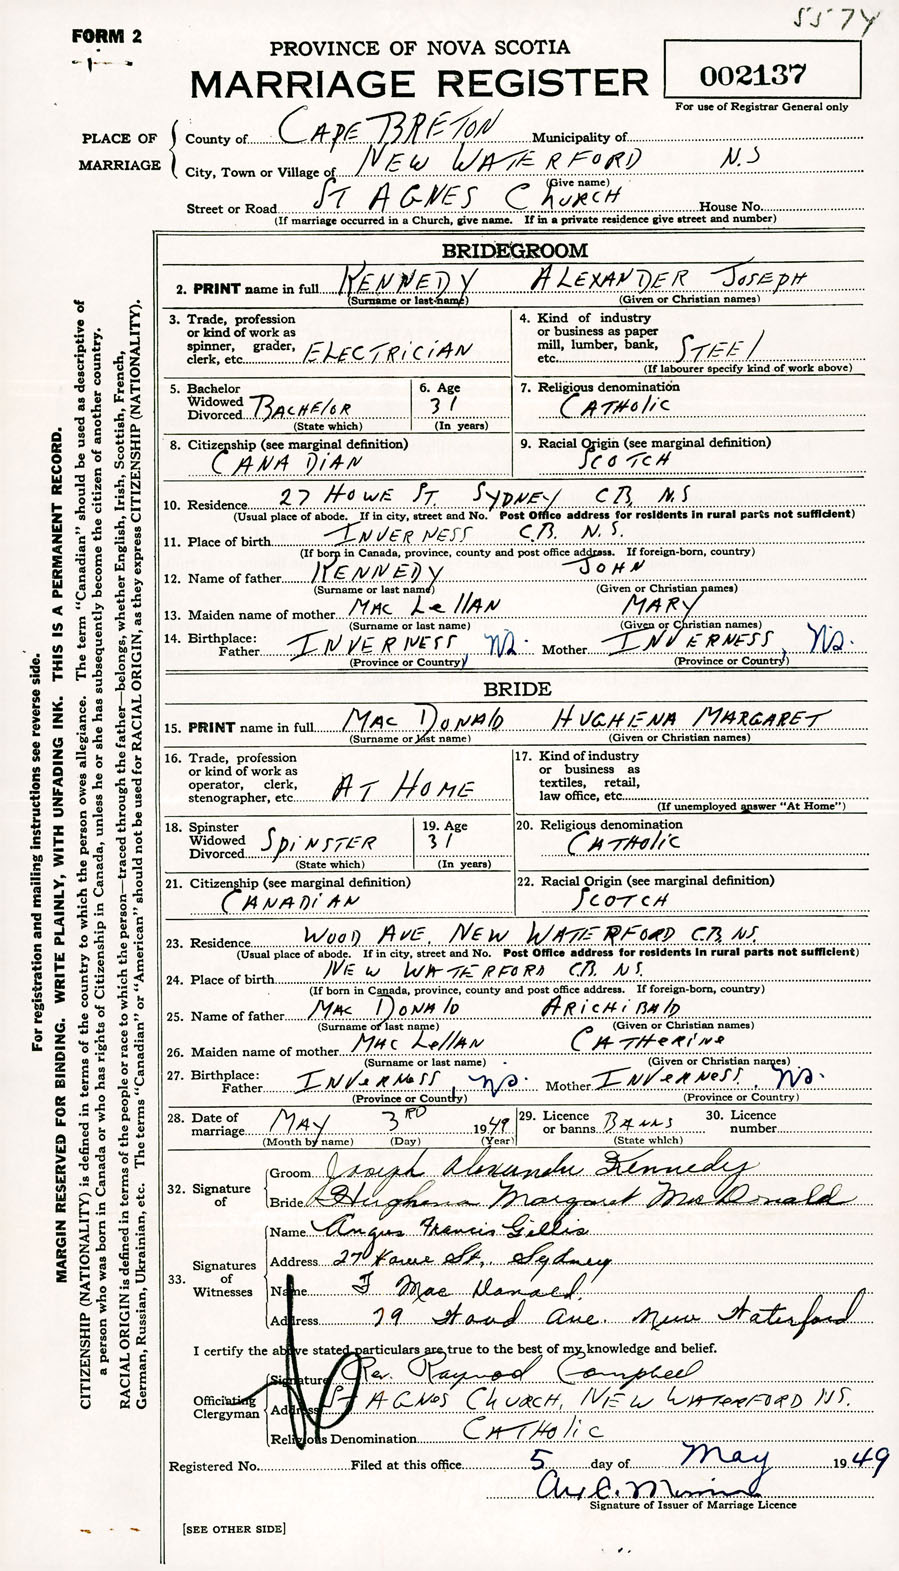 5574
FORM 2
PROVINCE OF NOVA SCOTIA
MARRIAGE REGISTER
002137
For use of Registrar General only
PLACE OF MARRIAGE
County of CAPE BRETON Municipality of
City, Town or Village of NEW WATERFORD N.S
(Give name)
Street or Road ST AGNES CHURCH House No.
(If marriage occurred in a Church, give name. If in a private residence give street and number)
BRIDEGROOM
2. PRINT name in full KENNEDY ALEXANDER JOSEPH
(Surname or last name) (Given or Christian names)
3. Trade, profession or kind of work as spinner, grader, clerk, etc. ELECTRICIAN
4. Kind of industry or business as paper mill, lumber, bank, etc. STEEl
(If labourer specify kind of work above)
5. Bachelor Widowed Divorced BACHELOR
(State which)
6. Age 31
(In years)
7. Religious denomination CATHOLIC
8. Citizenship (see marginal definition) CANADIAN
9. Racial Origin (see marginal definition) SCOTCH
10. Residence 27 HOWE ST. SYDNEY C.B. N.S
(Usual place of abode. If in city, street and No. Post Office address for residents in rural parts not sufficient)
11. Place of birth INVERNESS C.B. N.S.
(If born in Canada, province, county and post office address. If foreign-born, country)
12. Name of father KENNEDY JOHN
(Surname or last name) (Given or Christian names)
13. Maiden name of mother MAC LellAN MARY
(Surname or last name) (Given or Christian names)
14. Birthplace: Father INVERNESS, NS. Mother INVERNESS, NS.
(Province or Country) (Province or Country)
BRIDE
15. PRINT name in full MAC DONALD HUGHENA MARGARET
(Surname or last name) (Given or Christian names)
16. Trade, profession or kind of work as operator, clerk, stenographer, etc. AT HOME
17. Kind of industry or business as textiles, retail, law office, etc.
(If unemployed answer "At Home")
18. Spinster Widowed Divorced SPINSTER
(State which)
19. Age 31
(In years)
20. Religious denomination CATHOLIC
21. Citizenship (see marginal definition) CANADIAN
22. Racial Origin (see marginal definition) SCOTCH
23. Residence WOOD AVE. NEW WATERFORD C.B. NS.
(Usual place of abode. If in city, street and No. Post Office address for residents in rural parts not sufficient)
24. Place of birth NEW WATERFORD C.B. NS.
(If born in Canada, province, county and post office address. If foreign-born, country)
25. Name of father MAC DONALD ARICHIBALD
(Surname of last name) (Given or Christian names)
26. Maiden name of mother MAC LellAN CATHERINE
(Surname or last name) (Given or Christian names)
27. Birthplace: Father INVERNESS, NS. Mother INVERNESS, NS.
(Province or Country) (Province or Country)
28. Date of marriage MAY 3RD 1949
(Month by name) (Day) (Year)
29. Licence or banns BANNS
(State which)
30. Licence number
32. Signature of
Groom Joseph Alexander Kennedy
Bride Hughena Margaret MacDonald
33. Signatures of Witnesses
Name Angus Francis Gillis
Address 27 Howe St, Sydney
Name F MacDonald.
Address 79 Wood Ave. New Waterford
I certify the above stated particulars are true to the best of my knowledge and belief.
Officiating Clergyman
Signature Rev. Raymod Campbell
Address ST AGNES CHURCH, NEW WATERFORD NS.
Religious Denomination CATHOLIC
Registered No. Filed at this office 5 day of May 1949
Signature of Issuer of Marriage Licence
[SEE OTHER SIDE]
For registration and mailing instructions see reverse side.
MARGIN RESERVED FOR BINDING. WRITE PLAINLY, WITH UNFADING INK. THIS IS A PERMANENT RECORD.
CITIZENSHIP (NATIONALITY) is defined in terms of the country to which the person owes allegiance. The term "Canadian" should be used as descriptive of
a person who was born in Canada or who has rights of Citizenship in Canada, unless he or she has subsequently become the citizen of another country.
RACIAL ORIGIN is defined in terms of the people or race to which the person—traced through the father—belongs, whether English, Irish, Scottish, French,
German, Russian, Ukrainian, etc. The terms "Canadian" or "American" should not be used for RACIAL ORIGIN, as they express CITIZENSHIP (NATIONALITY).